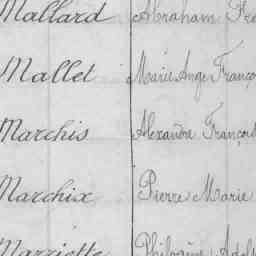 Mallard Abraham Fré
Mallet Marie Ange Franço
Marchis Alexandre François
Marchix Pierre Marie
Marriette Philogène Adol